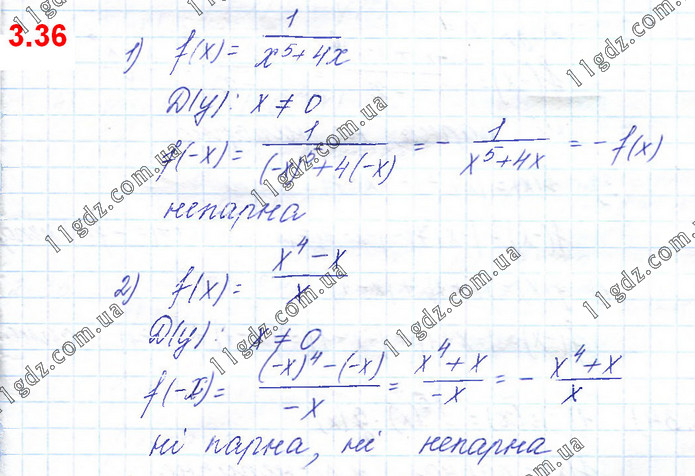 3.36
1) f(x) = 1/(x⁵+4x)
D(y): x ≠ 0
f(-x) = 1/((-x)⁵+4(-x)) = - 1/(x⁵+4x) = -f(x)
непарна
2) f(x) = (x⁴-x)/x
D(y): x ≠ 0
f(-x) = ((-x)⁴-(-x))/(-x) = (x⁴+x)/(-x) = - (x⁴+x)/x
ні парна, ні непарна
11gdz.com.ua
11gdz.com.ua
11gdz.com.ua
11gdz.com.ua
11gdz.com.ua
11gdz.com.ua
11gdz.com.ua